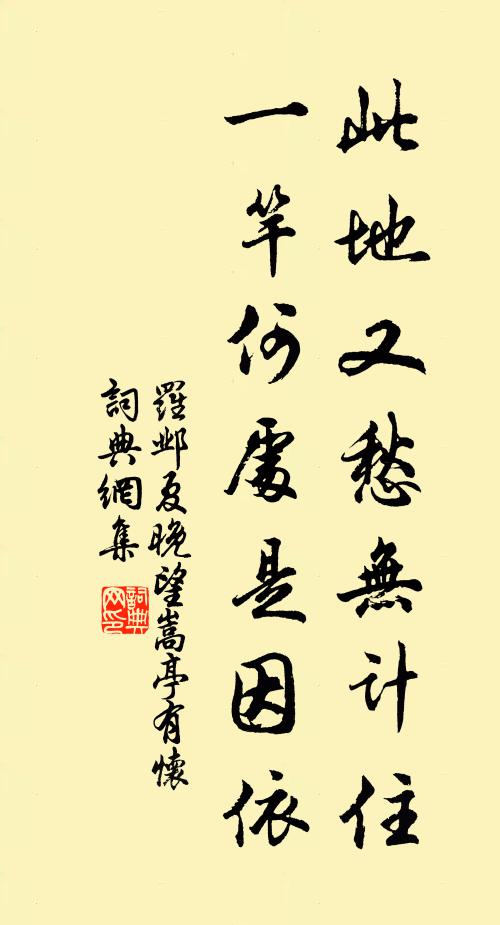 此地又愁無計住
一竿何處是因依
羅鄴夏晚望嵩亭有懷
詞典網集
詞典网印